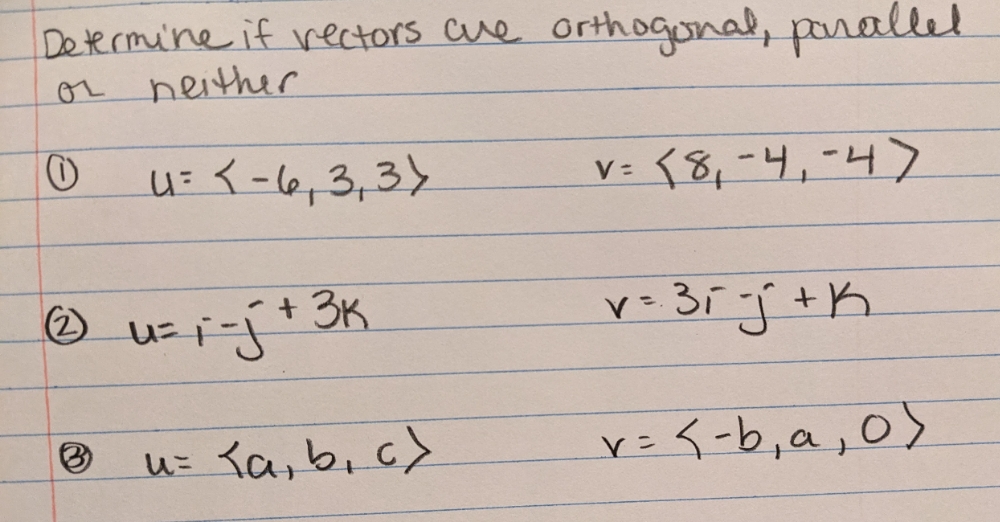 Determine if vectors are orthogonal, parallel
or neither
① u= <-6, 3, 3> v= <8, -4, -4>
② u= i-j + 3k v= 3i -j + k
③ u= <a, b, c> v= <-b, a, 0>